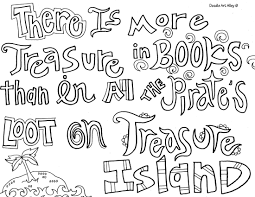 Doodle Art Alley ©
There Is More
Treasure in Books
than in All the Pirate's
Loot on Treasure
Island